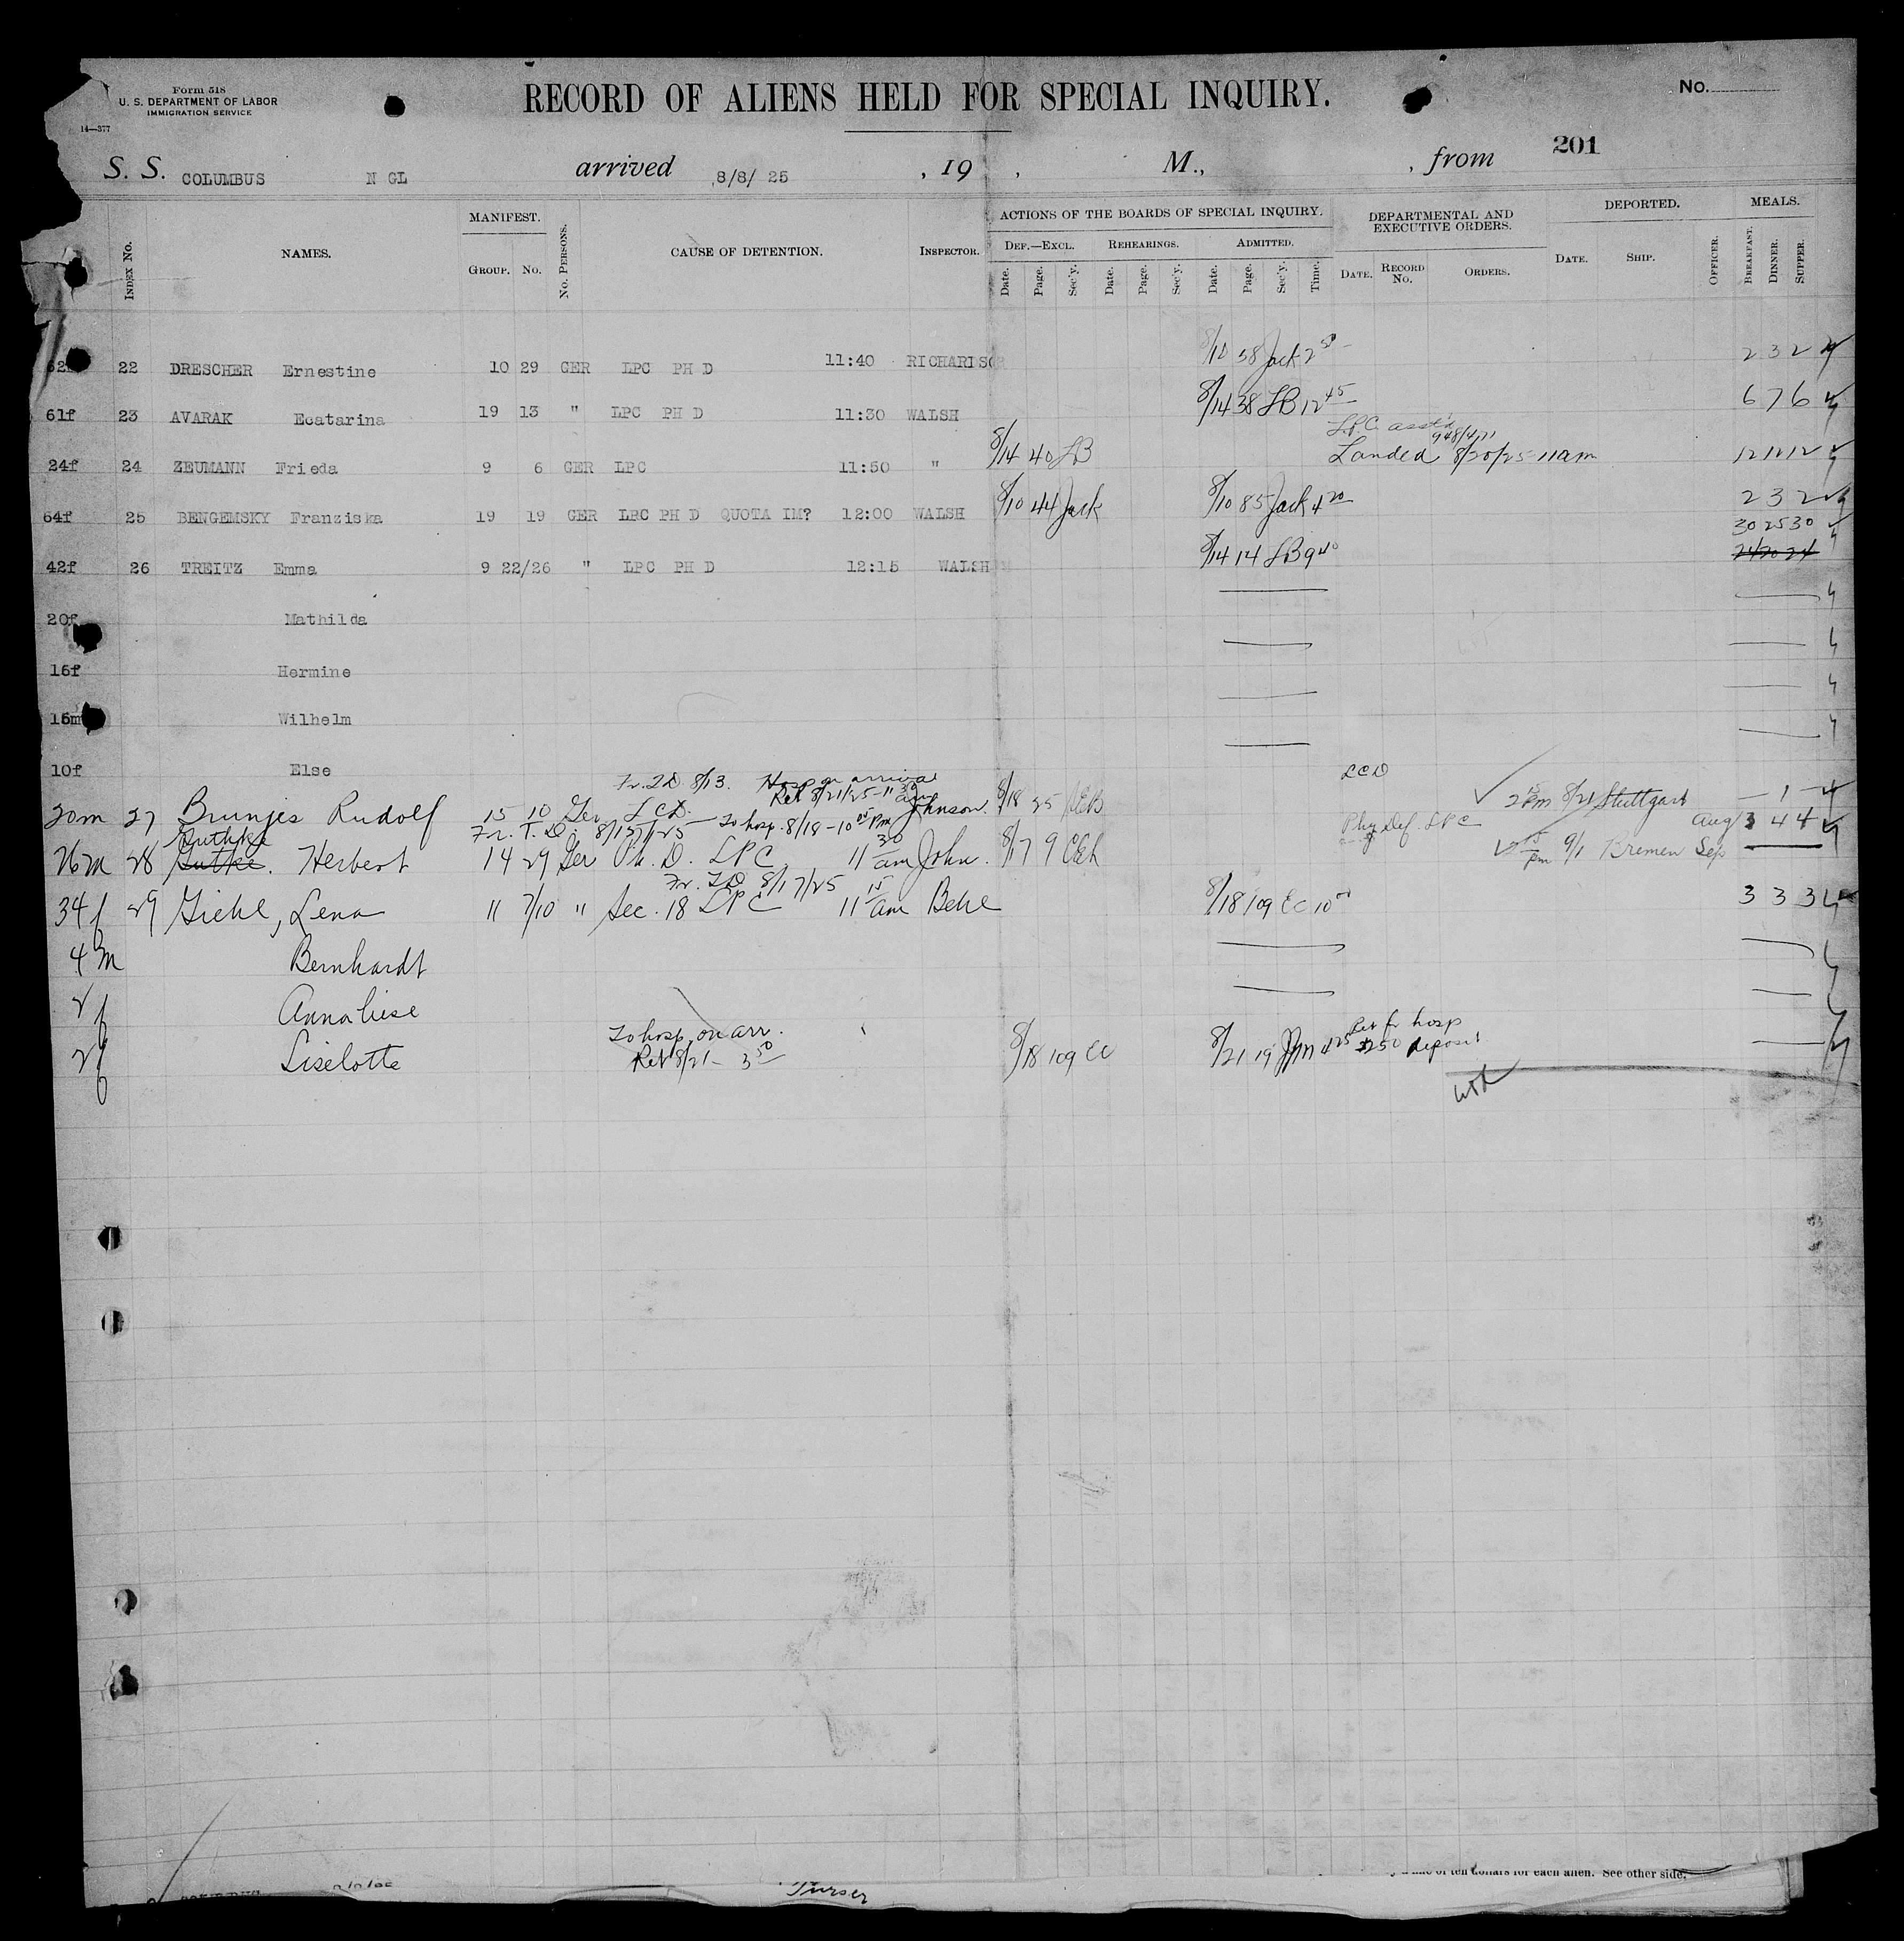 Form 518
U. S. DEPARTMENT OF LABOR
IMMIGRATION SERVICE
14—377
RECORD OF ALIENS HELD FOR SPECIAL INQUIRY.
No.
201
S. S. COLUMBUS N GL arrived 8/8/ 25 , 19 , M., , from
Index No. NAMES. MANIFEST. Group. No. No. Persons. CAUSE OF DETENTION. Inspector. ACTIONS OF THE BOARDS OF SPECIAL INQUIRY. DEPARTMENTAL AND EXECUTIVE ORDERS. DEPORTED. MEALS.
Def.—Excl. Rehearings. Admitted.
Date. Page. Sec'y. Date. Page. Sec'y. Date. Page. Sec'y. Time. Date. Record No. Orders. Date. Ship. Officer. Breakfast. Dinner. Supper.
22 DRESCHER Ernestine 10 29 GER LPC PH D 11:40 RICHARDSO 8/10 58 Jack 2 50 2 3 2
61f 23 AVARAK Ecatarina 19 13 " LPC PH D 11:30 WALSH 8/14 38 LB 12 45 6 7 6
L.P.C.
24f 24 ZEUMANN Frieda 9 6 GER LPC 11:50 " 8/14 40 LB Landed 8/20/25 11am 12 11 12
64f 25 BENGEMSKY Franziska 19 19 GER LPC PH D QUOTA IM? 12:00 WALSH 8/10 44 Jack 8/10 85 Jack 4 20 2 3 2
30 25 30
42f 26 TREITZ Emma 9 22/26 " LPC PH D 12:15 WALSH 8/14 14 LB 9 40 24 20 24
20f Mathilda
16f Hermine
15m Wilhelm
10f Else
Fr. T.D 8/13. Hosp on arrival LCD
Ret 8/21/25 - 11 30 am
20m 27 Brunjes Rudolf 15 10 Ger LCD. Johnson. 8/18 2 15 pm 8/21 Stuttgart — 1 —
Fr. T. D. 8/15/25 To hosp. 8/18 - 10 Pm Phy Def. LPC Aug 3 4 4
Ruthke
26m 28 Guthke. Herbert 14 29 Ger Ph. D. LPC 11 30 am John. 8/17 9 2 15 pm 9/1 Bremen Sep
Fr. T.D 8/17/25
34f 29 Giehl, Lena 11 7/10 " Sec. 18 LPC 11 15 am 8/18 109 EC 10 3 3 3
4m Bernhardt
2f Annaliese
To hosp. on arr. Ret fr hosp
2f Liselotte Ret 8/21 - 3 50 8/18 109 8/21 19 4 25 $250 deposit
of ten dollars for each alien. See other side.
Purser